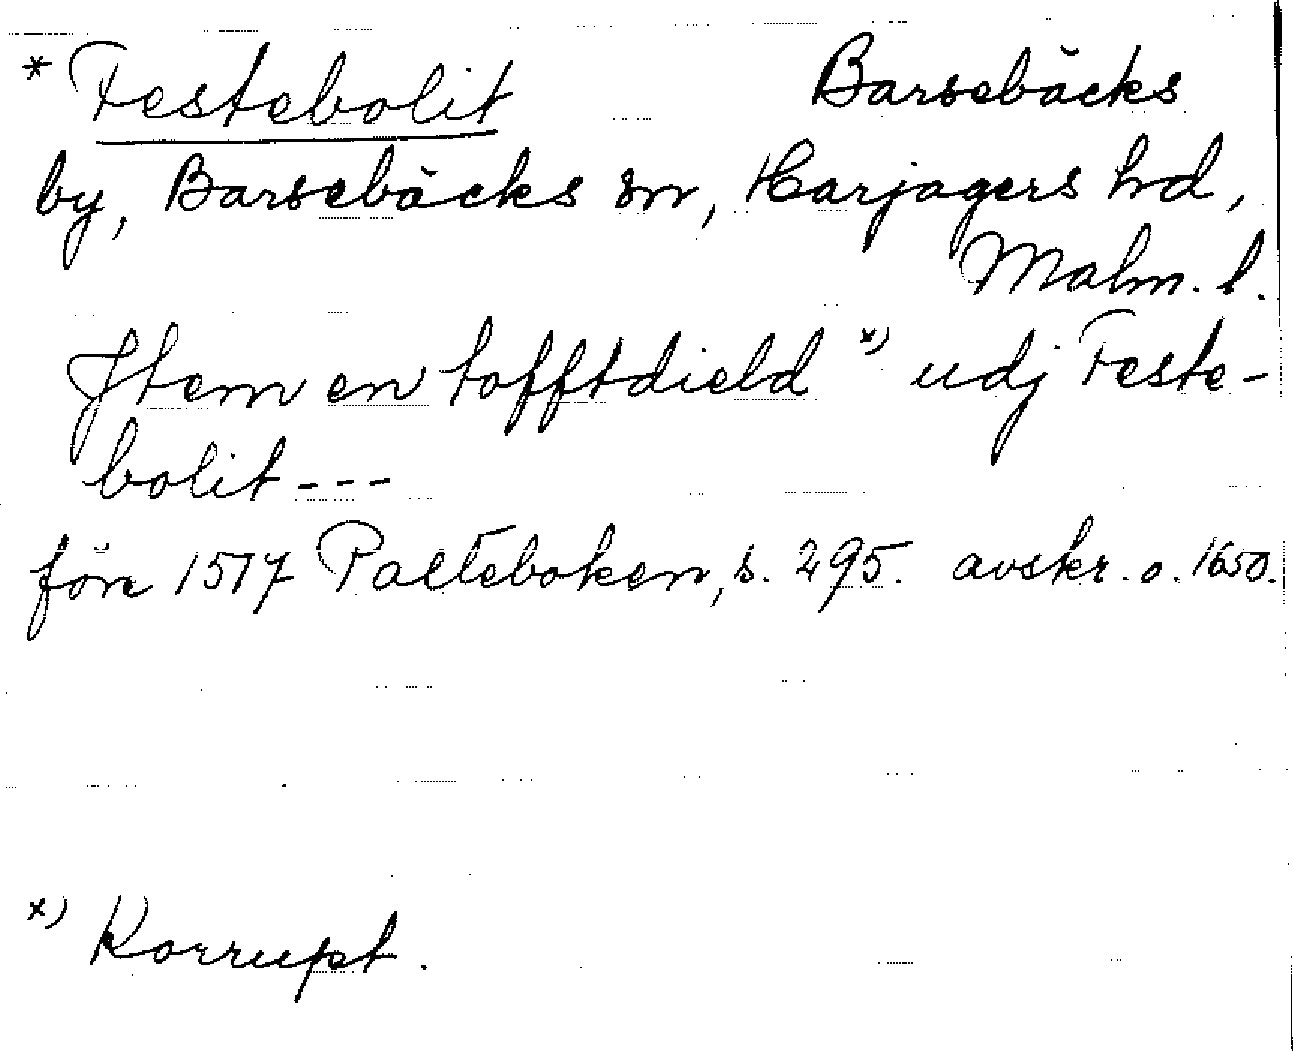 * Festebolit Barsebäcks
by, Barsebäcks sn, Harjagers hd,
Malm. l.
Jtem en tofftdield x) udj Feste-
bolit ---
före 1517 Palteboken, s. 295. avskr. o. 1650.
x) Korrupt.